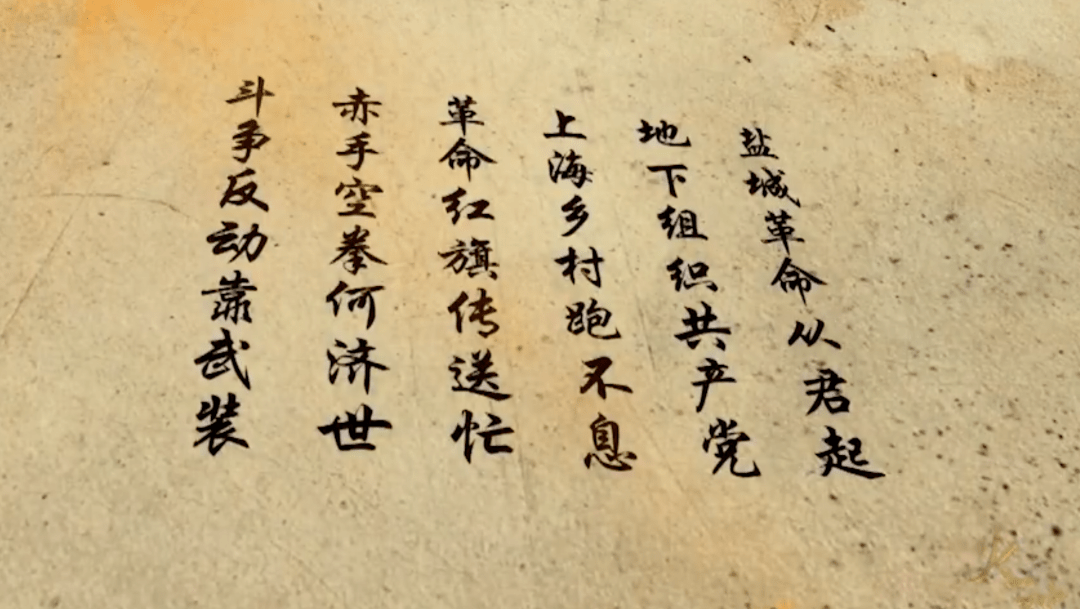 盐城革命从君起
地下组织共产党
上海乡村跑不息
革命红旗传送忙
赤手空拳何济世
斗争反动靠武装